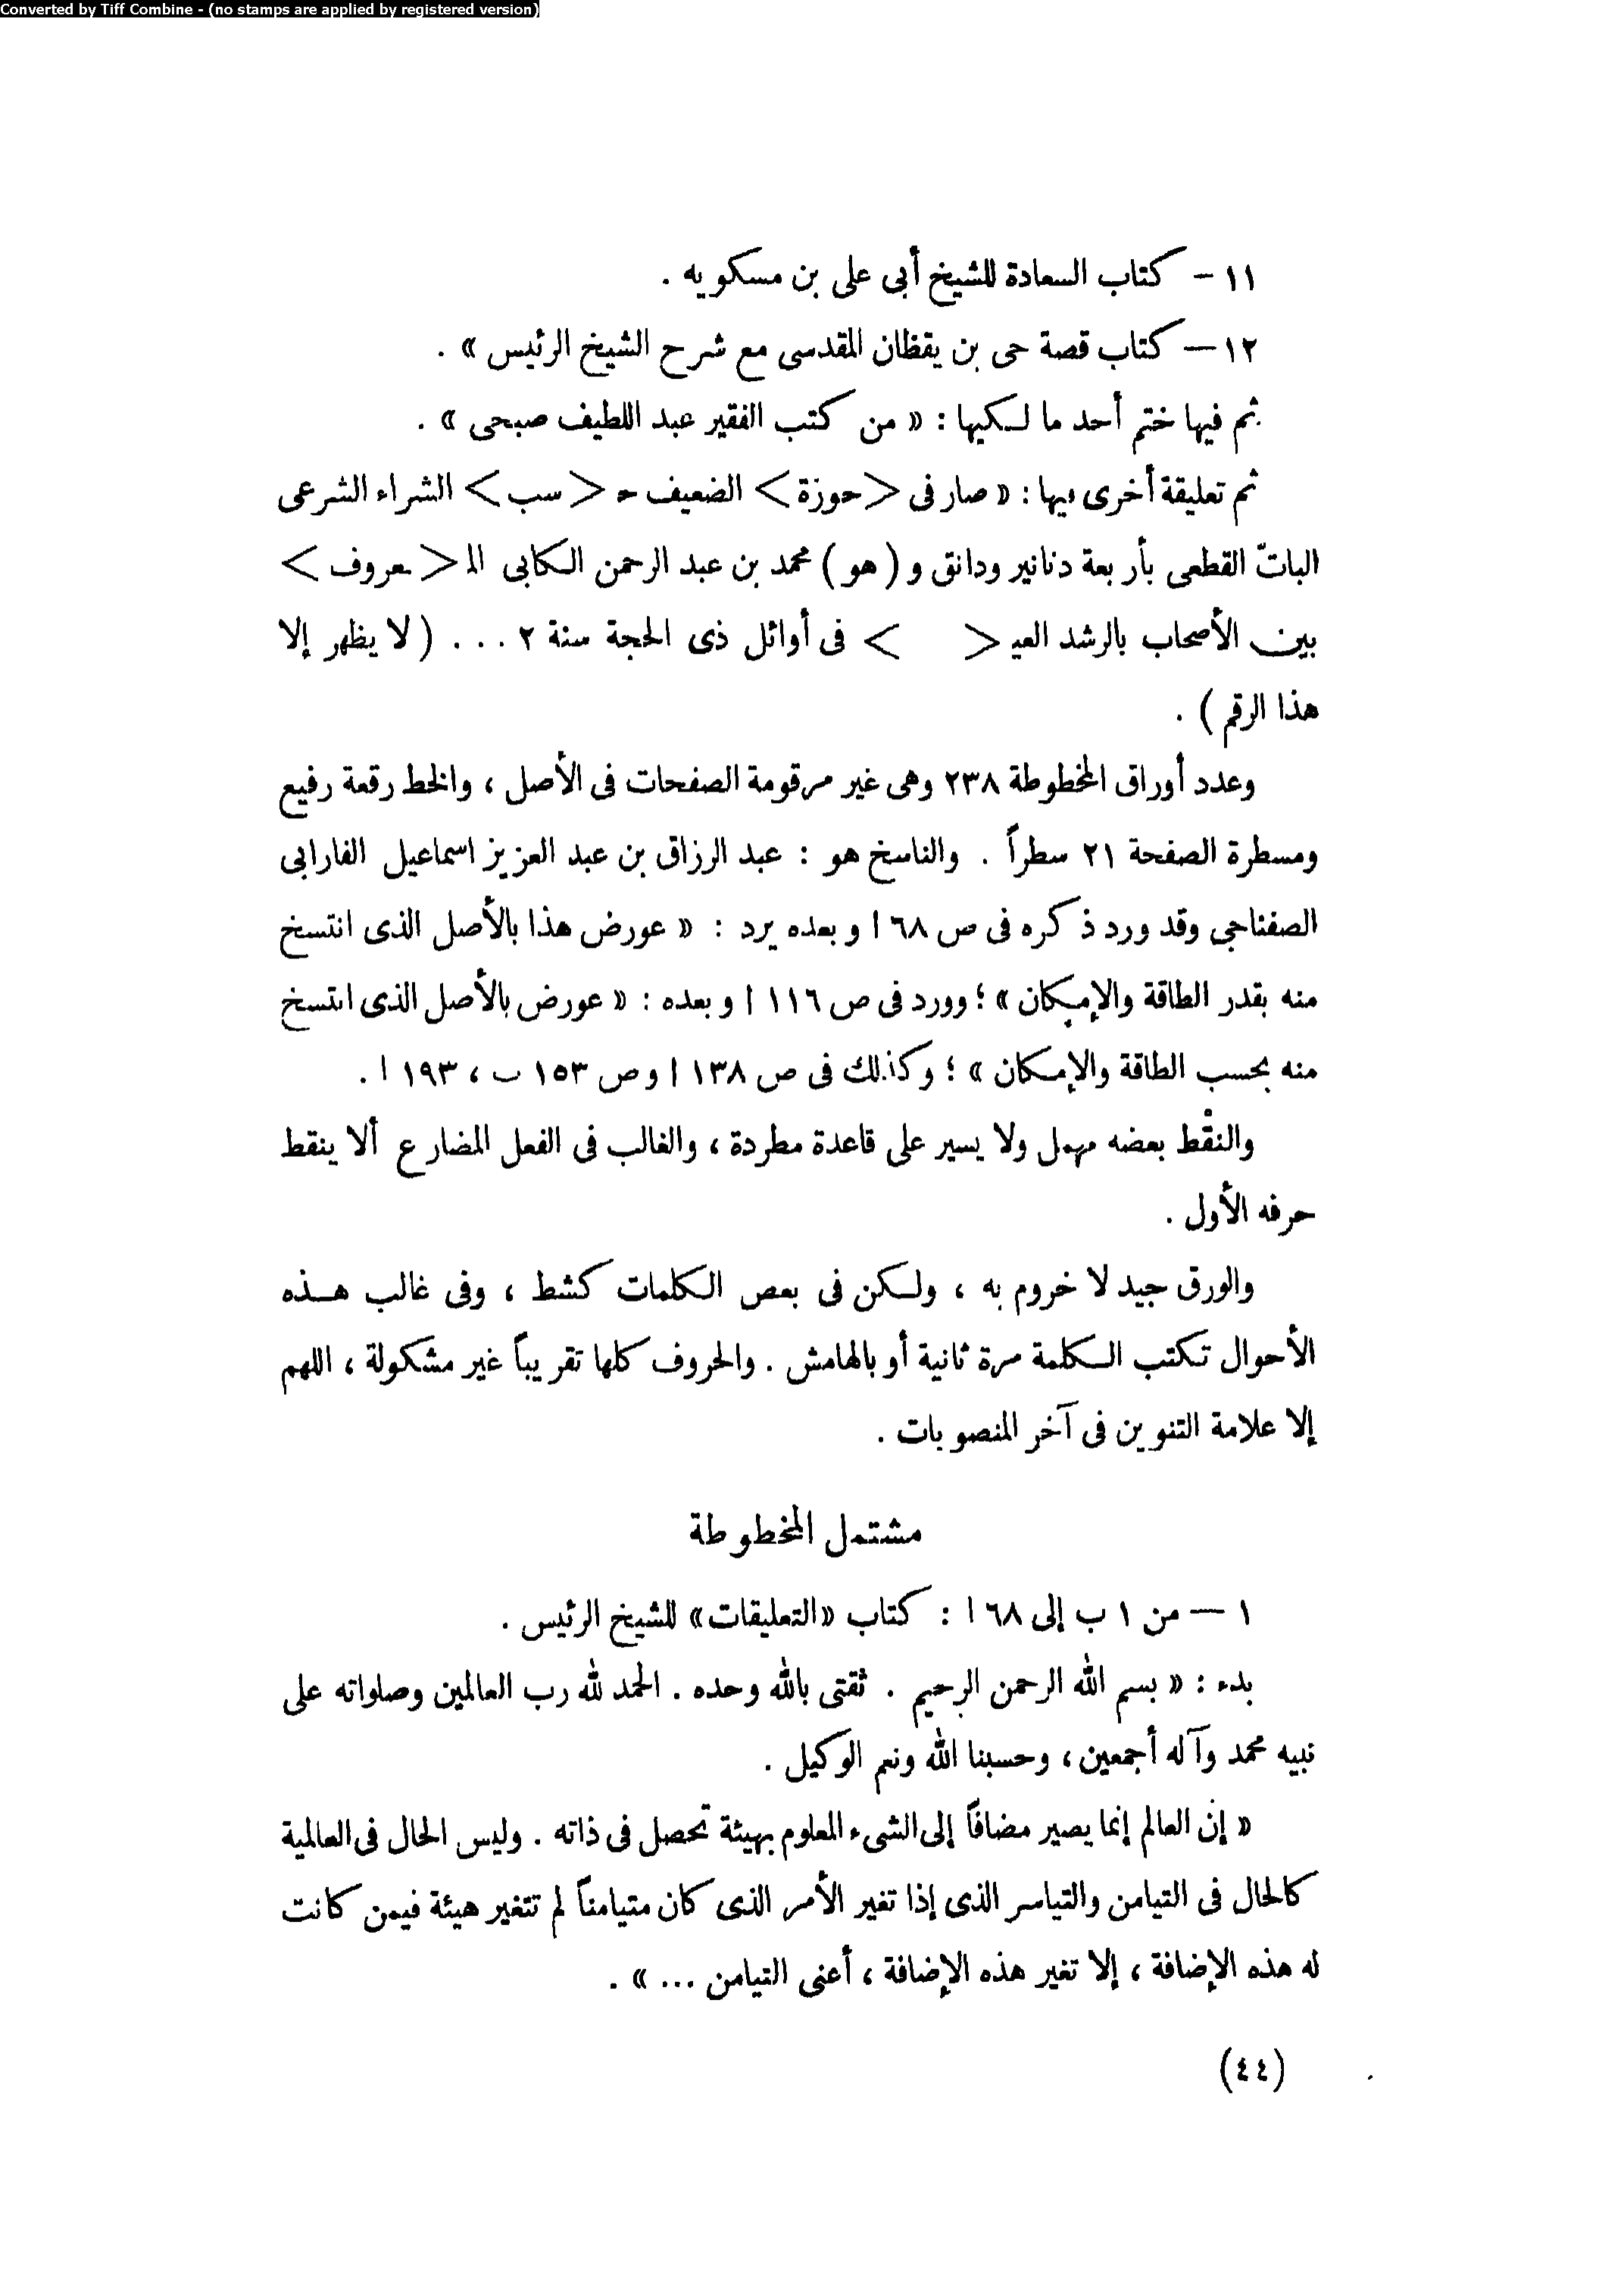 Converted by Tiff Combine - (no stamps are applied by registered version)
١١ - كتاب السعادة للشيخ أبى على بن مسكويه .
١٢ — كتاب قصة حى بن يقظان المقدسى مع شرح الشيخ الرئيس » .
ثم فيها ختم أحد مالكيها : « من كتب الفقير عبد اللطيف صبحى » .
ثم تعليقة أخرى فيها : « صار فى < حوزة > الضعيف < سب > الشراء الشرعى
الباتّ القطعى بأربعة دنانير ودانق و ( هو ) محمد بن عبد الرحمن الكابى الـ < معروف >
بين الأصحاب بالرشد العيـ < > فى أوائل ذى الحجة سنة ٢ ... ( لا يظهر إلا
هذا الرقم ) .
وعدد أوراق المخطوطة ٢٣٨ وهى غير مرقومة الصفحات فى الأصل ، والخط رقعة رفيع
ومسطرة الصفحة ٢١ سطراً . والناسخ هو : عبد الرزاق بن عبد العزيز اسماعيل الفارابى
الصفناجى وقد ورد ذكره فى ص ٦٨ ا وبعده يرد : « عورض هذا بالأصل الذى انتسخ
منه بقدر الطاقة والإمكان » ؛ وورد فى ص ١١٦ ا وبعده : « عورض بالأصل الذى انتسخ
منه بحسب الطاقة والإمكان » ؛ وكذلك فى ص ١٣٨ ا وص ١٥٣ ب ، ١٩٣ ا .
والنقْط بعضه مهمل ولا يسير على قاعدة مطردة ، والغالب فى الفعل المضارع ألا ينقط
حرفه الأول .
والورق جيد لا خروم به ، ولكن فى بعض الكلمات كشط ، وفى غالب هذه
الأحوال تكتب الكلمة مرة ثانية أو بالهامش . والحروف كلها تقريباً غير مشكولة ، اللهم
إلا علامة التنوين فى آخر المنصوبات .
مشتمل المخطوطة
١ — من ١ ب إلى ٦٨ ا : كتاب «التعليقات» للشيخ الرئيس .
بدء : « بسم الله الرحمن الرحيم . ثقتى بالله وحده . الحمد لله رب العالمين وصلواته على
نبيه محمد وآله أجمعين ، وحسبنا الله ونعم الوكيل .
« إن العالم إنما يصير مضافاً إلى الشىء المعلوم بهيئة تحصل فى ذاته . وليس الحال فى العالمية
كالحال فى التيامن والتياسر الذى إذا تغير الأمر الذى كان متيامناً لم تتغير هيئة فيمن كانت
له هذه الإضافة ، إلا تغير هذه الإضافة ، أعنى التيامن ... » .
(٤٤)